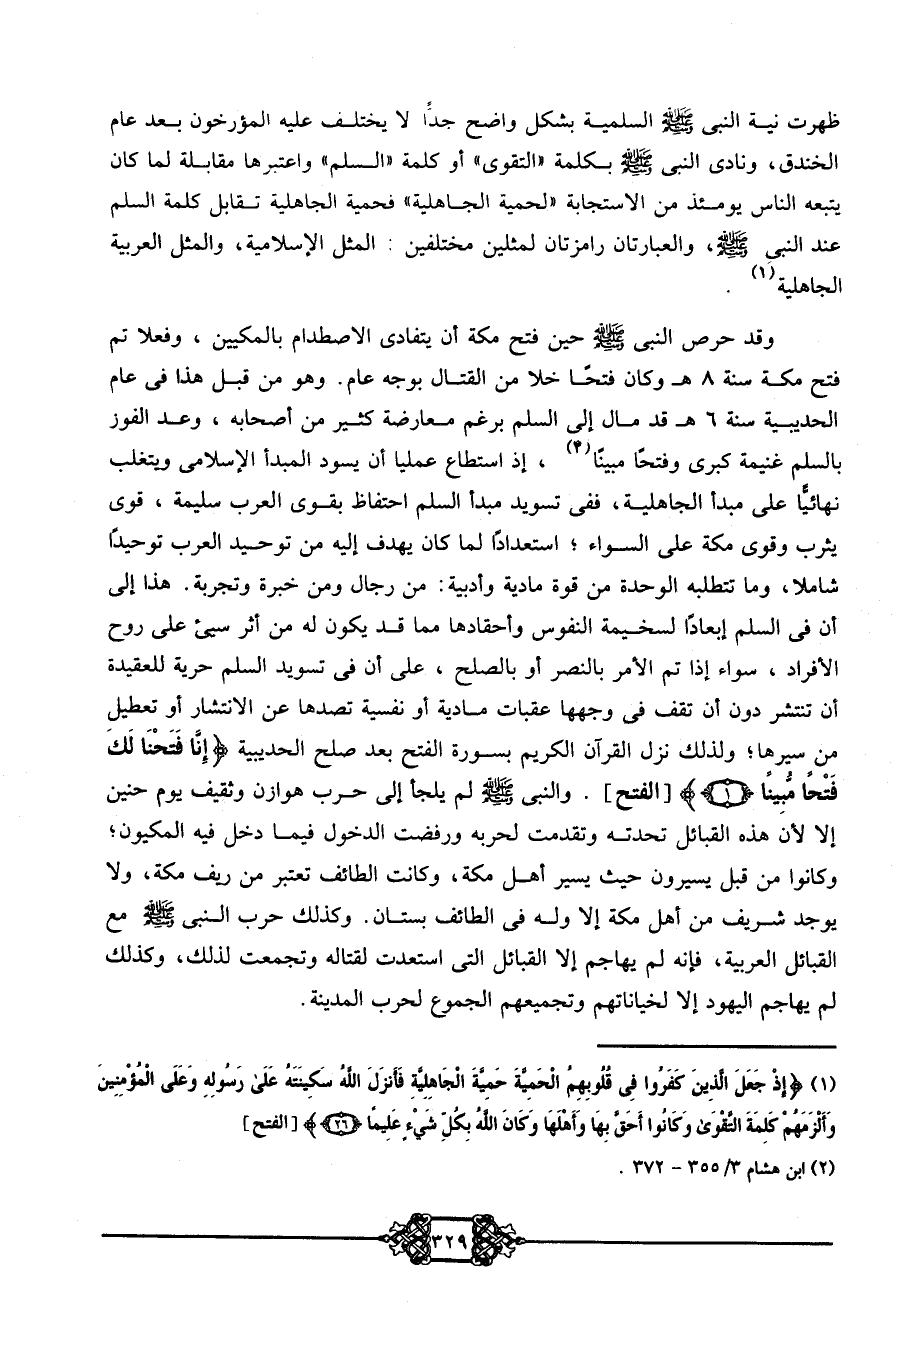 ظهرت نية النبى ﷺ السلمية بشكل واضح جدًا لا يختلف عليه المؤرخون بعد عام
الخندق، ونادى النبى ﷺ بكلمة «التقوى» أو كلمة «السلم» واعتبرها مقابلة لما كان
يتبعه الناس يومئذ من الاستجابة «لحمية الجاهلية» فحمية الجاهلية تقابل كلمة السلم
عند النبى ﷺ، والعبارتان رامزتان لمثلين مختلفين : المثل الإسلامية، والمثل العربية
الجاهلية(١) .
وقد حرص النبى ﷺ حين فتح مكة أن يتفادى الاصطدام بالمكيين ، وفعلا تم
فتح مكة سنة ٨ هـ وكان فتحًا خلا من القتال بوجه عام. وهو من قبل هذا فى عام
الحديبية سنة ٦ هـ قد مال إلى السلم برغم معارضة كثير من أصحابه ، وعد الفوز
بالسلم غنيمة كبرى وفتحًا مبينًا(٢) ، إذ استطاع عمليا أن يسود المبدأ الإسلامى ويتغلب
نهائيًّا على مبدأ الجاهلية، ففى تسويد مبدأ السلم احتفاظ بقوى العرب سليمة ، قوى
يثرب وقوى مكة على السواء ؛ استعدادًا لما كان يهدف إليه من توحيد العرب توحيدًا
شاملا، وما تتطلبه الوحدة من قوة مادية وأدبية: من رجال ومن خبرة وتجربة. هذا إلى
أن فى السلم إبعادًا لسخيمة النفوس وأحقادها مما قد يكون له من أثر سيئ على روح
الأفراد ، سواء إذا تم الأمر بالنصر أو بالصلح ، على أن فى تسويد السلم حرية للعقيدة
أن تنتشر دون أن تقف فى وجهها عقبات مادية أو نفسية تصدها عن الانتشار أو تعطيل
من سيرها؛ ولذلك نزل القرآن الكريم بسورة الفتح بعد صلح الحديبية ﴿ إِنَّا فَتَحْنَا لَكَ
فَتْحًا مُّبِينًا (١) ﴾ [الفتح] . والنبى ﷺ لم يلجأ إلى حرب هوازن وثقيف يوم حنين
إلا لأن هذه القبائل تحدته وتقدمت لحربه ورفضت الدخول فيما دخل فيه المكيون؛
وكانوا من قبل يسيرون حيث يسير أهل مكة، وكانت الطائف تعتبر من ريف مكة، ولا
يوجد شريف من أهل مكة إلا وله فى الطائف بستان. وكذلك حرب النبى ﷺ مع
القبائل العربية، فإنه لم يهاجم إلا القبائل التى استعدت لقتاله وتجمعت لذلك، وكذلك
لم يهاجم اليهود إلا لخياناتهم وتجميعهم الجموع لحرب المدينة.
(١) ﴿ إِذْ جَعَلَ الَّذِينَ كَفَرُوا فِى قُلُوبِهِمُ الْحَمِيَّةَ حَمِيَّةَ الْجَاهِلِيَّةِ فَأَنزَلَ اللَّهُ سَكِينَتَهُ عَلَىٰ رَسُولِهِ وَعَلَى الْمُؤْمِنِينَ
وَأَلْزَمَهُمْ كَلِمَةَ التَّقْوَىٰ وَكَانُوا أَحَقَّ بِهَا وَأَهْلَهَا وَكَانَ اللَّهُ بِكُلِّ شَىْءٍ عَلِيمًا (٢٦) ﴾ [الفتح]
(٢) ابن هشام ٣/ ٣٥٥ – ٣٧٢ .
٣٢٩